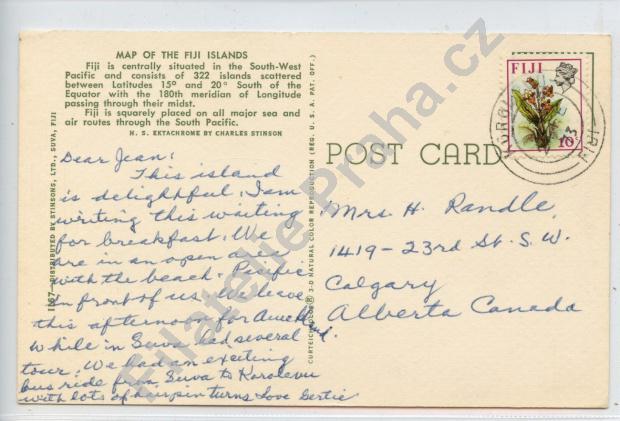 MAP OF THE FIJI ISLANDS
Fiji is centrally situated in the South-West
Pacific and consists of 322 islands scattered
between Latitudes 15° and 20° South of the
Equator with the 180th meridian of Longitude
passing through their midst.
Fiji is squarely placed on all major sea and
air routes through the South Pacific.
H. S. EKTACHROME BY CHARLES STINSON
Dear Jean:
This island
is delightful. I am
writing this waiting
for breakfast. We
are in an open area
with the beach & Pacific
in front of us. We leave
this afternoon for
While in Suva had several
tour. We had an exciting
bus ride from Suva to Korolevu
with lots of hairpin turns. Love Gertie
DISTRIBUTED BY STINSONS, LTD., SUVA, FIJI
CURTEICHCOLOR® 3-D NATURAL COLOR REPRODUCTION (REG. U. S. A. PAT. OFF.)
POST CARD
FIJI
10c
FIJI
Mrs. H. Randle,
1419-23rd St. S. W.
Calgary
Alberta Canada
Filatelie-Praha.cz